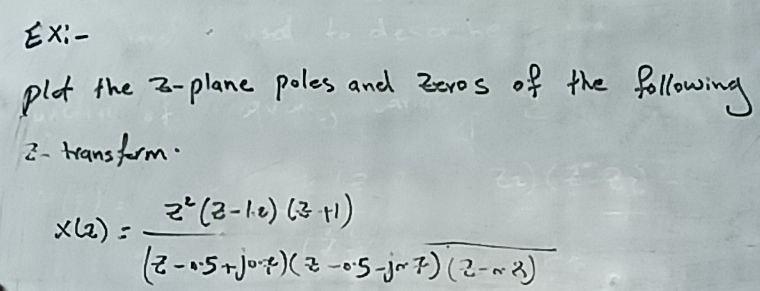 EX:-
plot the z-plane poles and zeros of the following
z-transform.
X(z) = z²(z-1.2)(z+1)
(z-0.5+j0.7)(z-0.5-j0.7)(z-0.8)